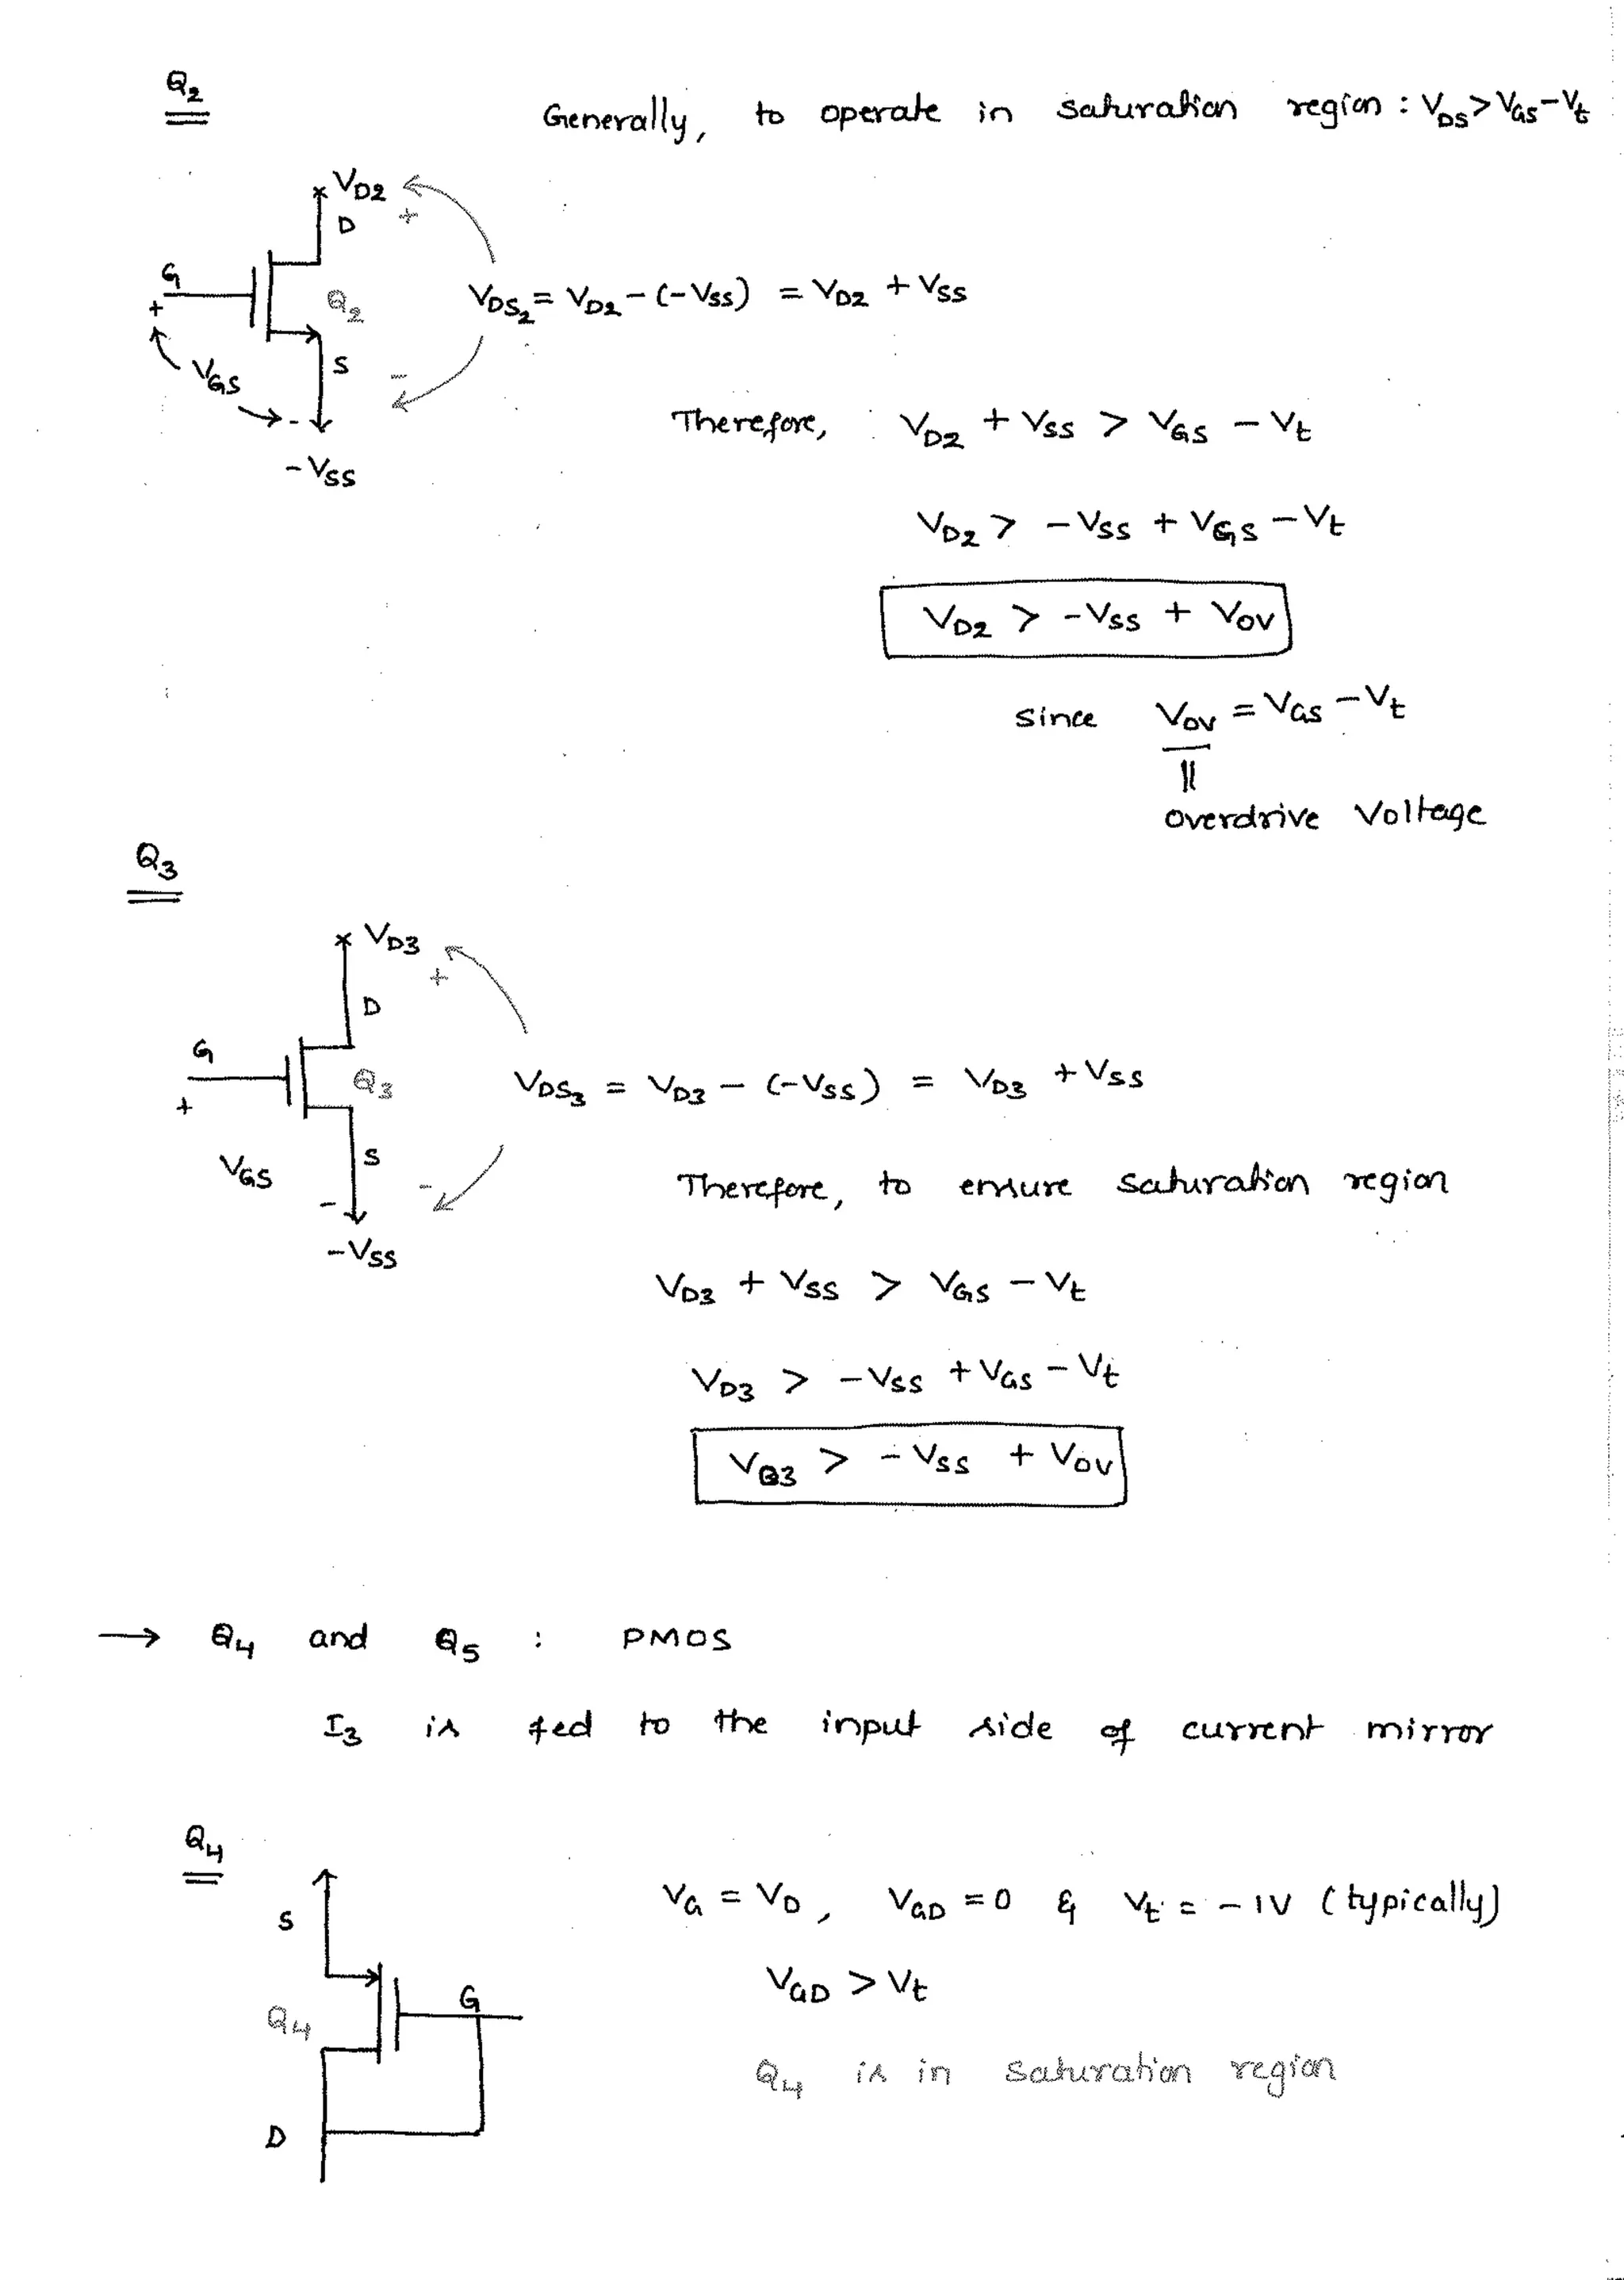 Q2
Generally, to operate in saturation region : VDS > VGS - Vt
VD2
D
+
G
Q2
+
VDS2 = VD2 - (-VSS) = VD2 + VSS
S
VGS
-
-
-VSS
Therefore, VD2 + VSS > VGS - Vt
VD2 > -VSS + VGS - Vt
VD2 > -VSS + VOV
since VOV = VGS - Vt
||
overdrive Voltage
Q3
VD3
+
D
G
Q3
+
VDS3 = VD3 - (-VSS) = VD3 + VSS
S
VGS
-
-
-VSS
Therefore, to ensure saturation region
VD3 + VSS > VGS - Vt
VD3 > -VSS + VGS - Vt
VD3 > -VSS + VOV
→ Q4 and Q5 : PMOS
I3 is fed to the input side of current mirror
Q4
S
VG = VD, VGD = 0 & Vt = -1V (typically)
VGD > Vt
G
Q4
Q4 is in saturation region
D